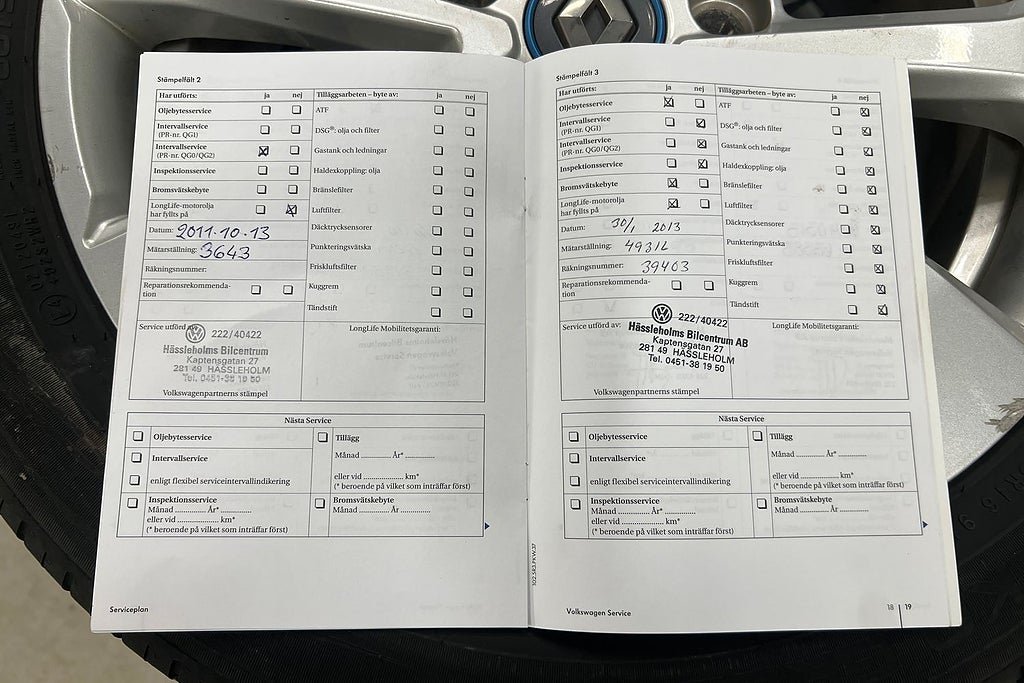 Stämpelfält 2
Har utförts: ja nej
Tilläggsarbeten – byte av: ja nej
Oljebytesservice
ATF
Intervallservice
(PR-nr. QG1)
DSG®: olja och filter
Intervallservice
(PR-nr. QG0/QG2)
Gastank och ledningar
Inspektionsservice
Haldexkoppling: olja
Bromsvätskebyte
Bränslefilter
LongLife-motorolja
har fyllts på
Luftfilter
Datum: 2011-10-13
Däcktrycksensorer
Mätarställning: 3643
Punkteringsvätska
Räkningsnummer:
Friskluftsfilter
Reparationsrekommenda-
tion
Kuggrem
Tändstift
Service utförd av:
LongLife Mobilitetsgaranti:
222/40422
Hässleholms Bilcentrum
Kaptensgatan 27
281 49 HÄSSLEHOLM
Tel. 0451-38 19 50
Volkswagenpartnerns stämpel
Nästa Service
Oljebytesservice
Tillägg
Intervallservice
Månad ............ År* ............
enligt flexibel serviceintervallindikering
eller vid ................ km*
(* beroende på vilket som inträffar först)
Inspektionsservice
Månad ............ År* ............
eller vid ................ km*
(* beroende på vilket som inträffar först)
Bromsvätskebyte
Månad ............ År ............
Serviceplan
Stämpelfält 3
Har utförts: ja nej
Tilläggsarbeten – byte av: ja nej
Oljebytesservice
ATF
Intervallservice
(PR-nr. QG1)
DSG®: olja och filter
Intervallservice
(PR-nr. QG0/QG2)
Gastank och ledningar
Inspektionsservice
Haldexkoppling: olja
Bromsvätskebyte
Bränslefilter
LongLife-motorolja
har fyllts på
Luftfilter
Datum: 30/1 2013
Däcktrycksensorer
Mätarställning: 49314
Punkteringsvätska
Räkningsnummer: 39403
Friskluftsfilter
Reparationsrekommenda-
tion
Kuggrem
Tändstift
Service utförd av:
LongLife Mobilitetsgaranti:
222/40422
Hässleholms Bilcentrum AB
Kaptensgatan 27
281 49 HÄSSLEHOLM
Tel. 0451-38 19 50
Volkswagenpartnerns stämpel
Nästa Service
Oljebytesservice
Tillägg
Intervallservice
Månad ............ År* ............
enligt flexibel serviceintervallindikering
eller vid ................ km*
(* beroende på vilket som inträffar först)
Inspektionsservice
Månad ............ År* ............
eller vid ................ km*
(* beroende på vilket som inträffar först)
Bromsvätskebyte
Månad ............ År ............
102.5R3.FKW.37
Volkswagen Service
18 | 19